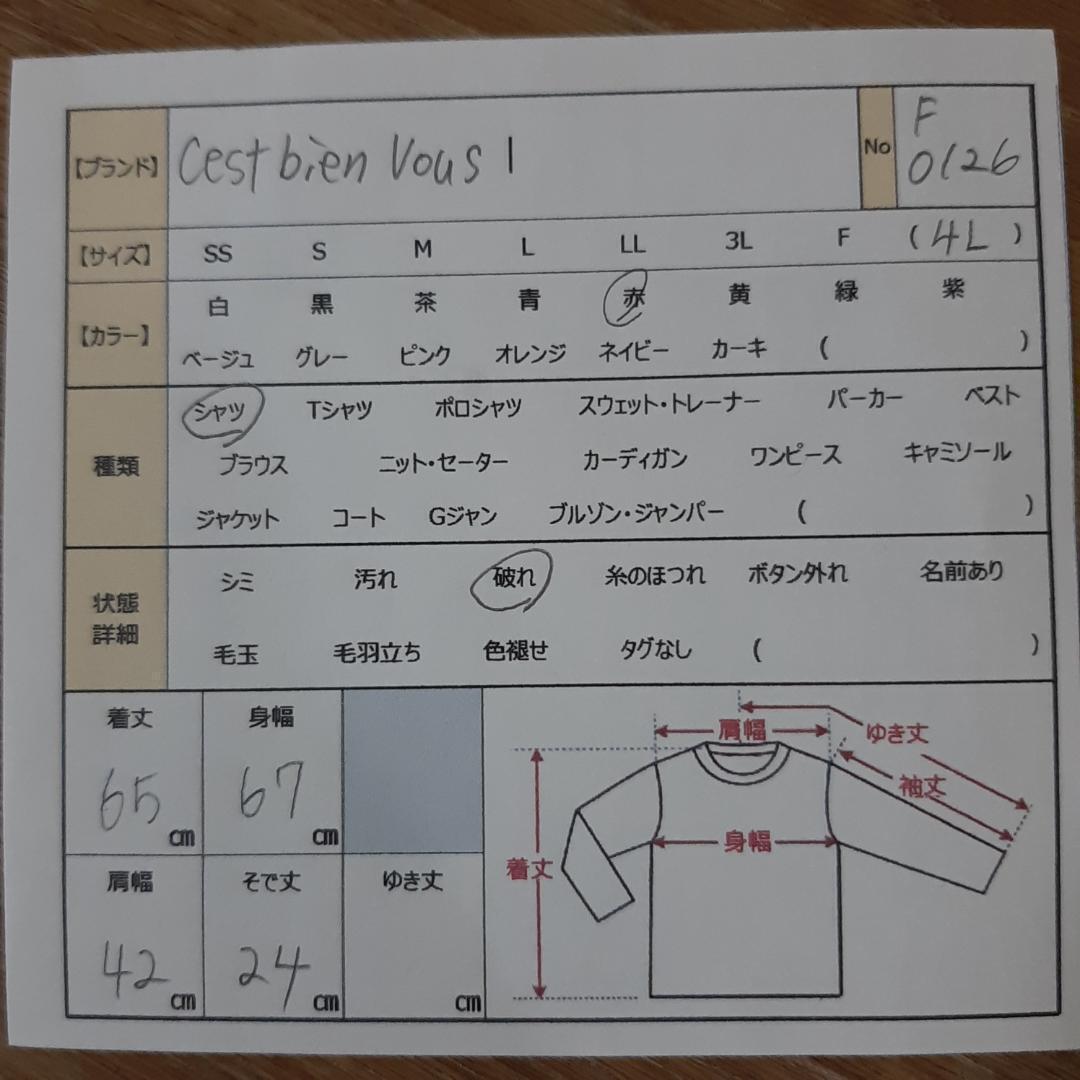 【ブランド】 Cest bien Vous ! No F 0126
【サイズ】 SS S M L LL 3L F (4L)
【カラー】 白 黒 茶 青 赤 黄 緑 紫
ベージュ グレー ピンク オレンジ ネイビー カーキ ( )
種類 シャツ Tシャツ ポロシャツ スウェット・トレーナー パーカー ベスト
ブラウス ニット・セーター カーディガン ワンピース キャミソール
ジャケット コート Gジャン ブルゾン・ジャンパー ( )
状態詳細 シミ 汚れ 破れ 糸のほつれ ボタン外れ 名前あり
毛玉 毛羽立ち 色褪せ タグなし ( )
着丈 身幅
65cm 67cm
肩幅 そで丈 ゆき丈
42cm 24cm cm
肩幅 ゆき丈
袖丈
着丈 身幅